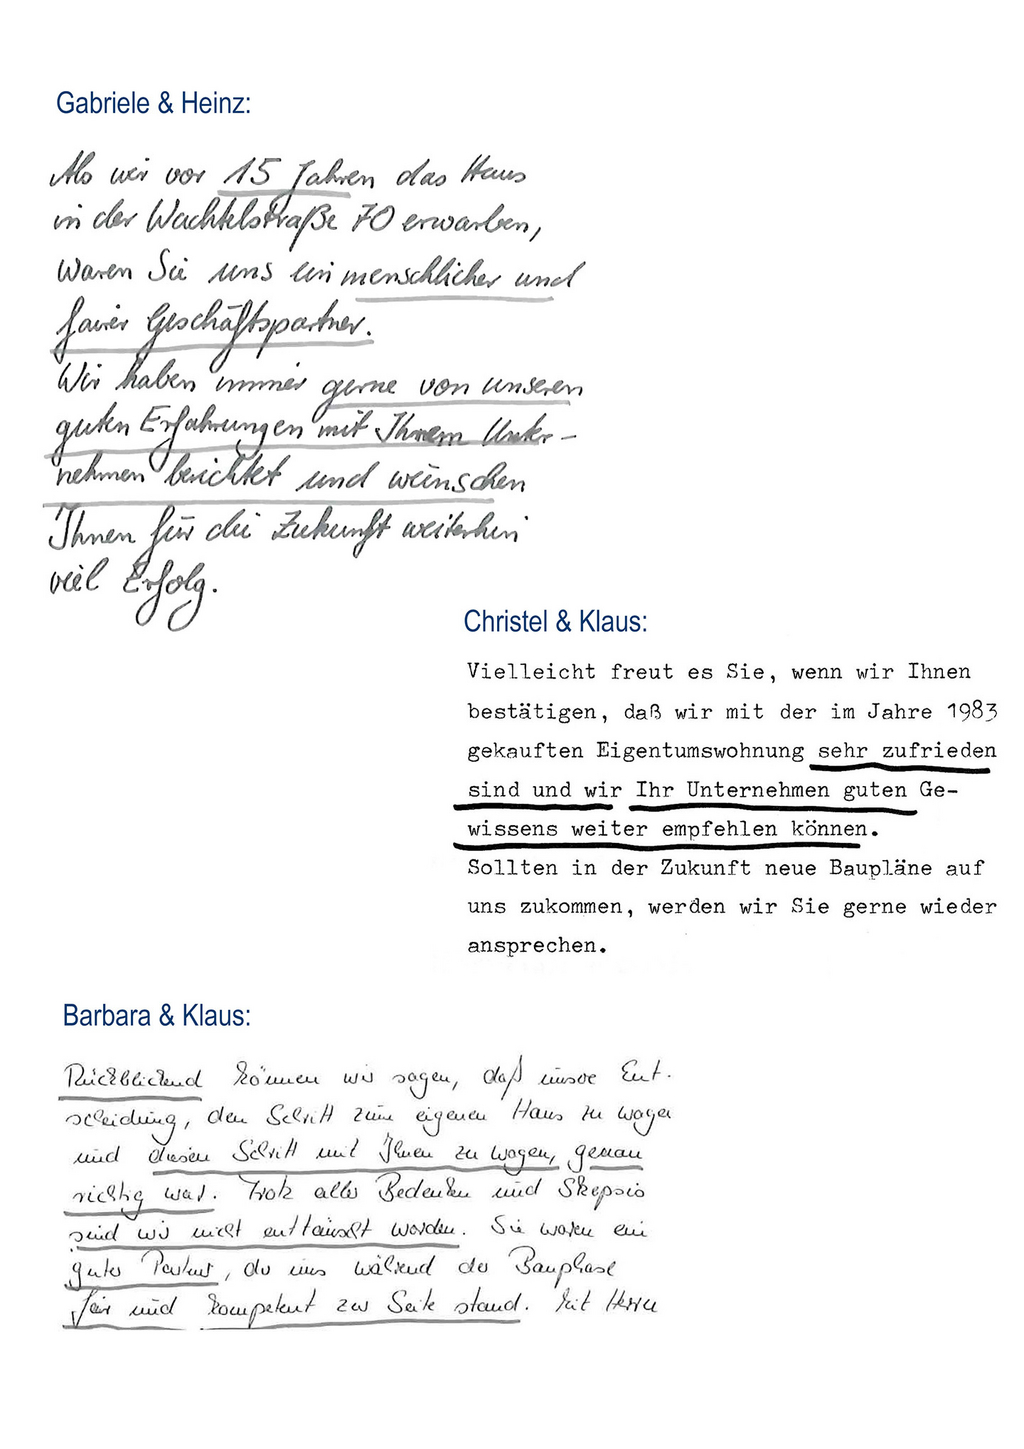 Gabriele & Heinz:
Als wir vor 15 Jahren das Haus
in der Wachtelstraße 70 erwarben,
waren Sie uns ein menschlicher und
fairer Geschäftspartner.
Wir haben immer gerne von unseren
guten Erfahrungen mit Ihrem Unter-
nehmen berichtet und wünschen
Ihnen für die Zukunft weiterhin
viel Erfolg.
Christel & Klaus:
Vielleicht freut es Sie, wenn wir Ihnen
bestätigen, daß wir mit der im Jahre 1983
gekauften Eigentumswohnung sehr zufrieden
sind und wir Ihr Unternehmen guten Ge-
wissens weiter empfehlen können.
Sollten in der Zukunft neue Baupläne auf
uns zukommen, werden wir Sie gerne wieder
ansprechen.
Barbara & Klaus:
Rückblickend können wir sagen, daß unsere Ent-
scheidung, den Schritt zum eigenen Haus zu wagen
und diesen Schritt mit Ihnen zu wagen, genau
richtig war. Trotz aller Bedenken und Skepsis
sind wir nicht enttäuscht worden. Sie waren ein
guter Partner, der uns während der Bauphase
fair und kompetent zur Seite stand. Mit Herrn